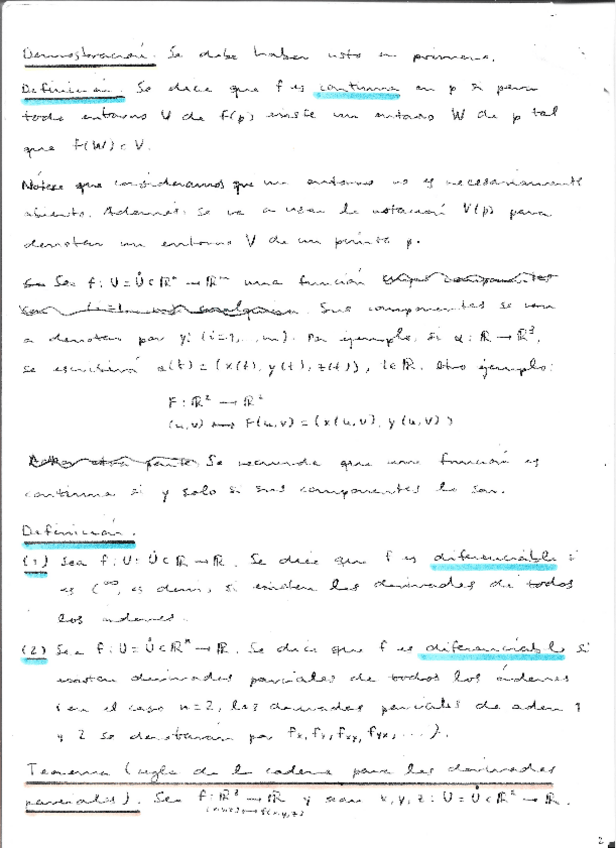 Demostración. Se debe haber visto en primero.
Definición. Se dice que f es continua en p si para
todo entorno V de f(p) existe un entorno W de p tal
que f(W) ⊂ V.
Nótese que consideramos que un entorno no es necesariamente
abierto. Además, se va a usar la notación V(p) para
denotar un entorno V de un punto p.
Sea f: U = U̇ ⊂ ℝⁿ → ℝᵐ una función. Sus componentes se van
a denotar por yᵢ (i=1, ..., m). Por ejemplo, si α: ℝ → ℝ³,
se escribirá α(t) = (x(t), y(t), z(t)), t∈ℝ. Otro ejemplo:
F: ℝ² → ℝ²
(u,v) ⟿ F(u,v) = (x(u,v), y(u,v))
Se recuerda que una función es
continua si y solo si sus componentes lo son.
Definición.
(1) Sea f: U = U̇ ⊂ ℝ → ℝ. Se dice que f es diferenciable si
es C^∞, es decir, si existen las derivadas de todos
los órdenes.
(2) Sea f: U = U̇ ⊂ ℝⁿ → ℝ. Se dice que f es diferenciable si
existen derivadas parciales de todos los órdenes
(en el caso n=2, las derivadas parciales de orden 1
y 2 se denotarán por fₓ, f_y, f_xy, f_yx, ...).
Teorema (regla de la cadena para las derivadas
parciales). Sea f: ℝ³ → ℝ y sean x, y, z: U = U̇ ⊂ ℝ² → ℝ.
(x,y,z) ⟿ f(x,y,z)
2